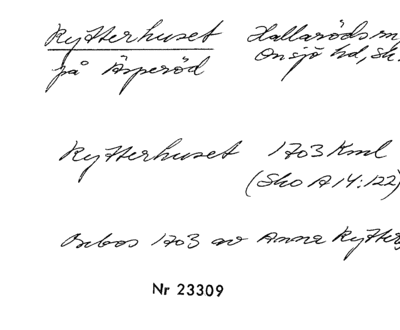 Rytterhuset Hallaröds sn
på Äsperöd Onsjö hd, Sk.
Rytterhuset 1703 Kml
(Sko A 14:122)
Bebos 1703 av Anna Rytters
Nr 23309